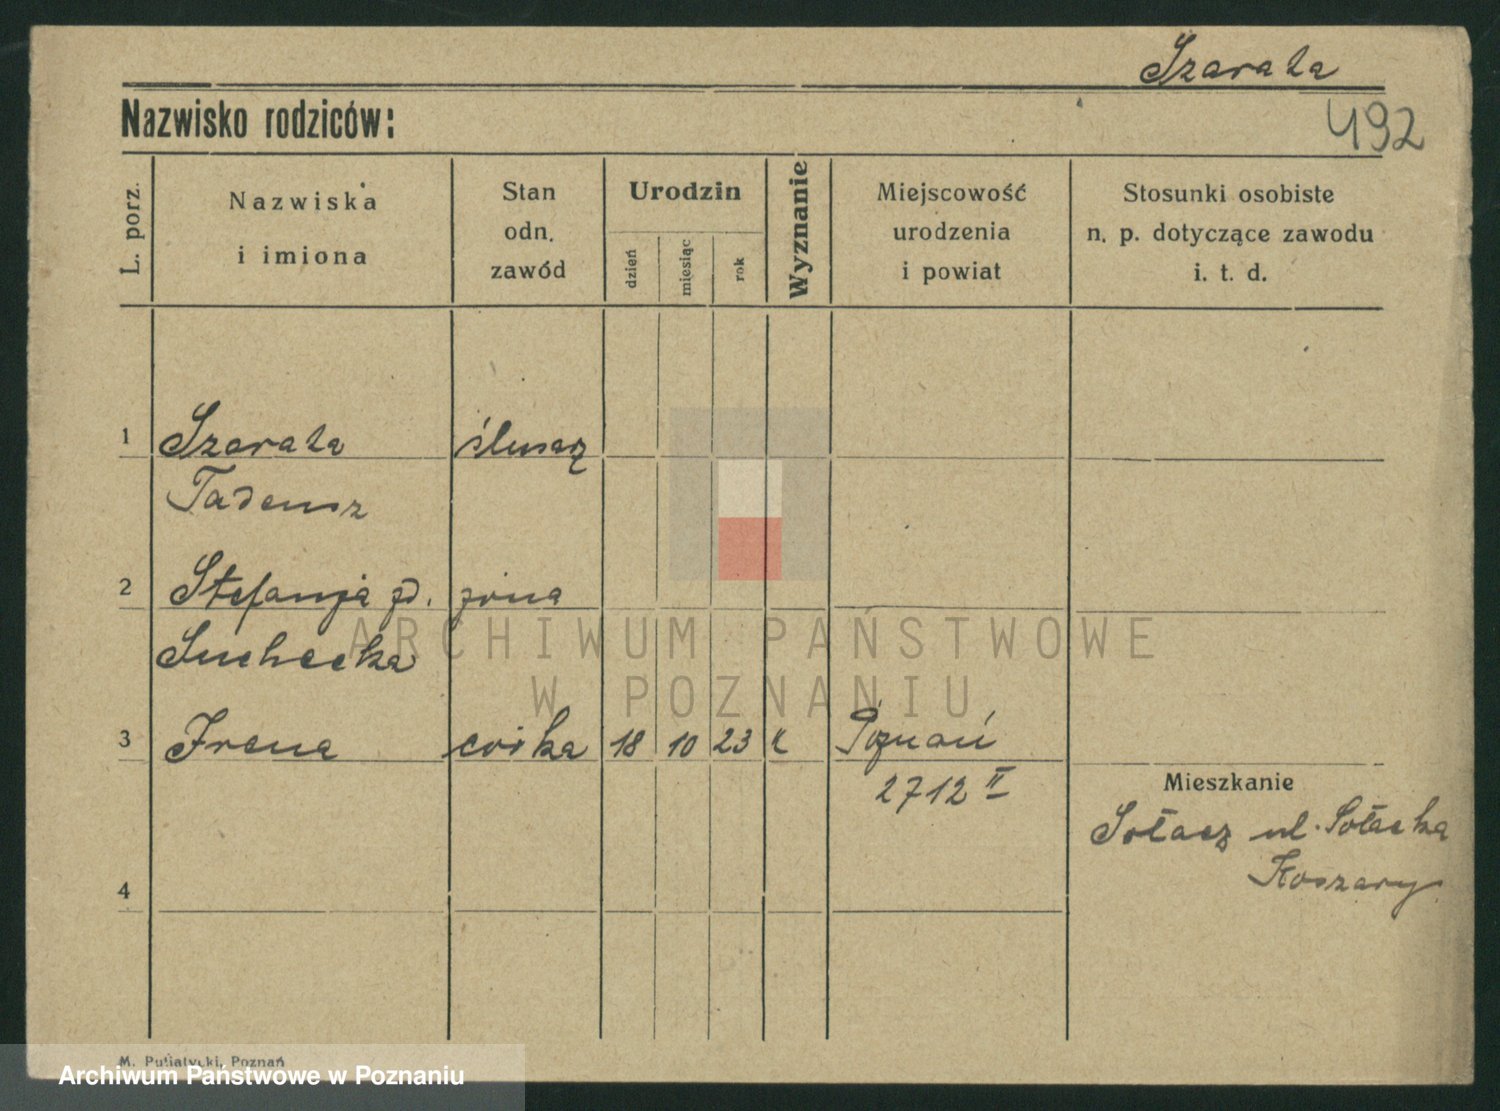 Szarata
492
Nazwisko rodziców:
L. porz.
Nazwiska
i imiona
Stan
odn.
zawód
Urodzin
dzień
miesiąc
rok
Wyznanie
Miejscowość
urodzenia
i powiat
Stosunki osobiste
n. p. dotyczące zawodu
i. t. d.
1 Szarata ślusarz
Tadeusz
2 Stefanja żd. żona
Suchecka
ARCHIWUM PAŃSTWOWE
W POZNANIU
3 Irena córka 18 10 23 k Poznań
2712 II
Mieszkanie
Sołacz ul. Sołacka
Koszary
4
M. Putiatycki, Poznań
Archiwum Państwowe w Poznaniu